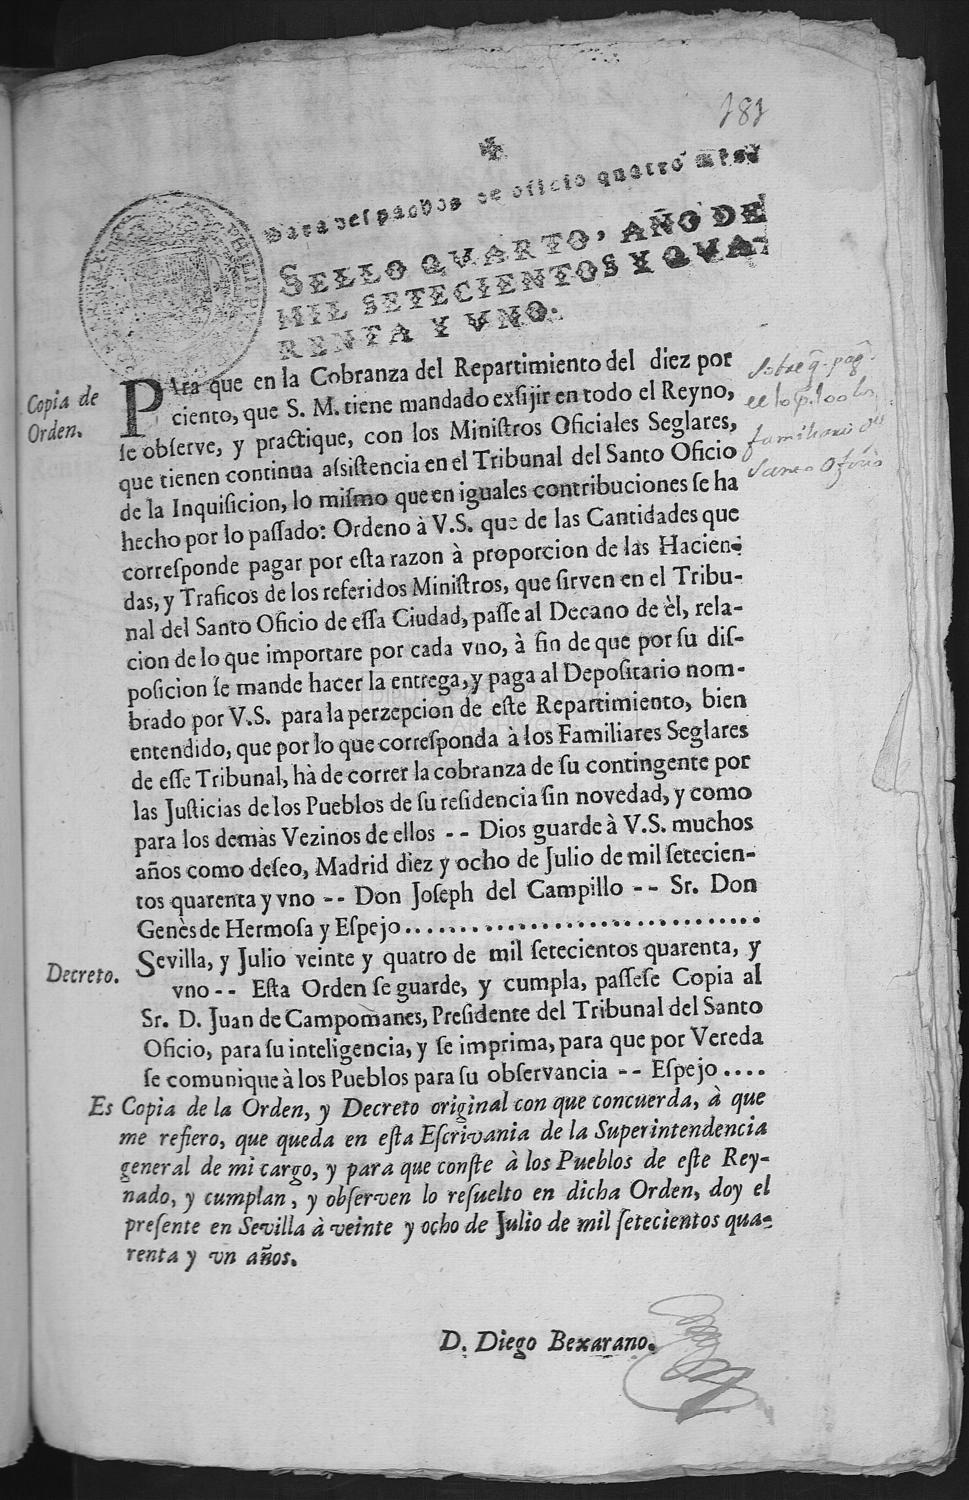 181
✠
Para despachos de oficio quatro mrs.
SELLO QVARTO, AÑO DE
MIL SETECIENTOS Y QVA-
RENTA Y VNO.
Copia de
Orden.
PAra que en la Cobranza del Repartimiento del diez por
ciento, que S. M. tiene mandado exsijir en todo el Reyno,
ſe obſerve, y practique, con los Miniſtros Oficiales Seglares,
que tienen continua aſsiſtencia en el Tribunal del Santo Oficio
de la Inquiſicion, lo miſmo que en iguales contribuciones ſe ha
hecho por lo paſſado: Ordeno à V.S. que de las Cantidades que
correſponde pagar por eſta razon à proporcion de las Hacien-
das, y Traficos de los referidos Miniſtros, que ſirven en el Tribu-
nal del Santo Oficio de eſſa Ciudad, paſſe al Decano de èl, rela-
cion de lo que importare por cada vno, à fin de que por ſu diſ-
poſicion ſe mande hacer la entrega, y paga al Depoſitario nom-
brado por V.S. para la perzepcion de eſte Repartimiento, bien
entendido, que por lo que correſponda à los Familiares Seglares
de eſſe Tribunal, hà de correr la cobranza de ſu contingente por
las Juſticias de los Pueblos de ſu reſidencia ſin novedad, y como
para los demàs Vezinos de ellos -- Dios guarde à V.S. muchos
años como deſeo, Madrid diez y ocho de Julio de mil ſetecien-
tos quarenta y vno -- Don Joſeph del Campillo -- Sr. Don
Genès de Hermoſa y Eſpejo..............................
Sobre q̃ pag.
familiares
Santo Oficio
Decreto.
Sevilla, y Julio veinte y quatro de mil ſetecientos quarenta, y
vno -- Eſta Orden ſe guarde, y cumpla, paſſeſe Copia al
Sr. D. Juan de Campomanes, Preſidente del Tribunal del Santo
Oficio, para ſu inteligencia, y ſe imprima, para que por Vereda
ſe comunique à los Pueblos para ſu obſervancia -- Eſpejo ....
Es Copia de la Orden, y Decreto original con que concuerda, à que
me refiero, que queda en eſta Eſcrivania de la Superintendencia
general de mi cargo, y para que conſte à los Pueblos de eſte Rey-
nado, y cumplan, y obſerven lo reſuelto en dicha Orden, doy el
preſente en Sevilla à veinte y ocho de Julio de mil ſetecientos qua-
renta y vn años.
D. Diego Bexarano.